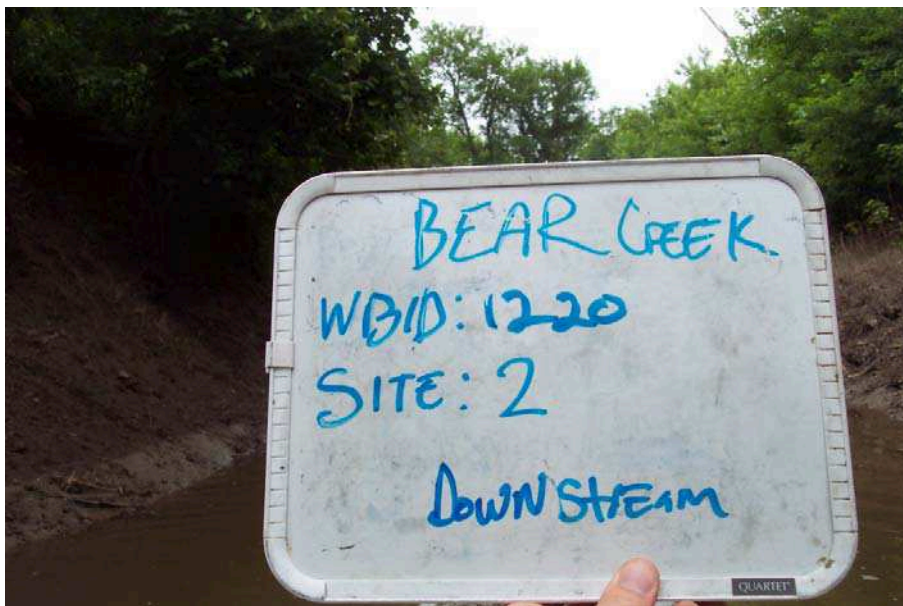 BEAR CREEK
WBID: 1220
SITE: 2
DOWNSTREAM
QUARTET